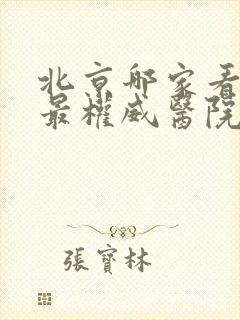 北京哪家看
最權威醫院
張寶林